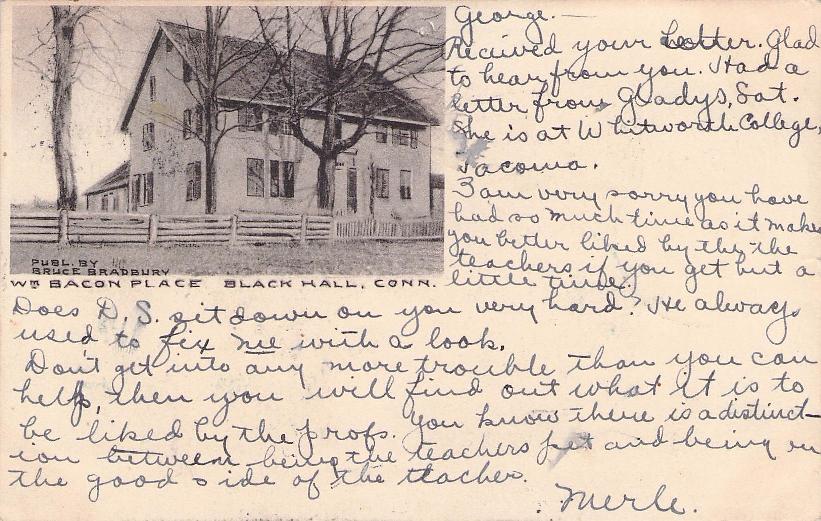 George.—
Recieved your letter. Glad
to hear from you. Had a
letter from Gladys, Sat.
She is at Whitworth College,
Tacoma.
I am very sorry you have
had so much time as it makes
you better liked by the the
teachers if you get but a
little time.
PUBL. BY
BRUCE BRADBURY
WM BACON PLACE BLACK HALL, CONN.
Does D. S. sit down on you very hard? He always
used to fix me with a look.
Don't get into any more trouble than you can
help, then you will find out what it is to
be liked by the profs. You know there is a distinct-
ion between being the teachers pet and being on
the good side of the teacher.
Merle.